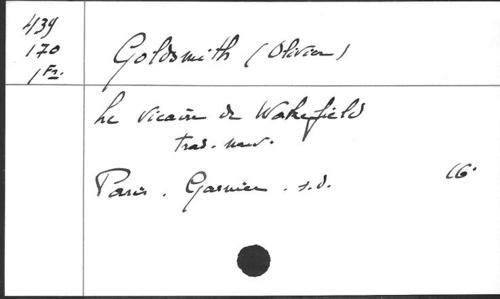 439
170
1 Fr.
Goldsmith (Olivier)
Le vicaire de Wakefield
trad. nouv.
Paris. Garnier. s.d. 16°